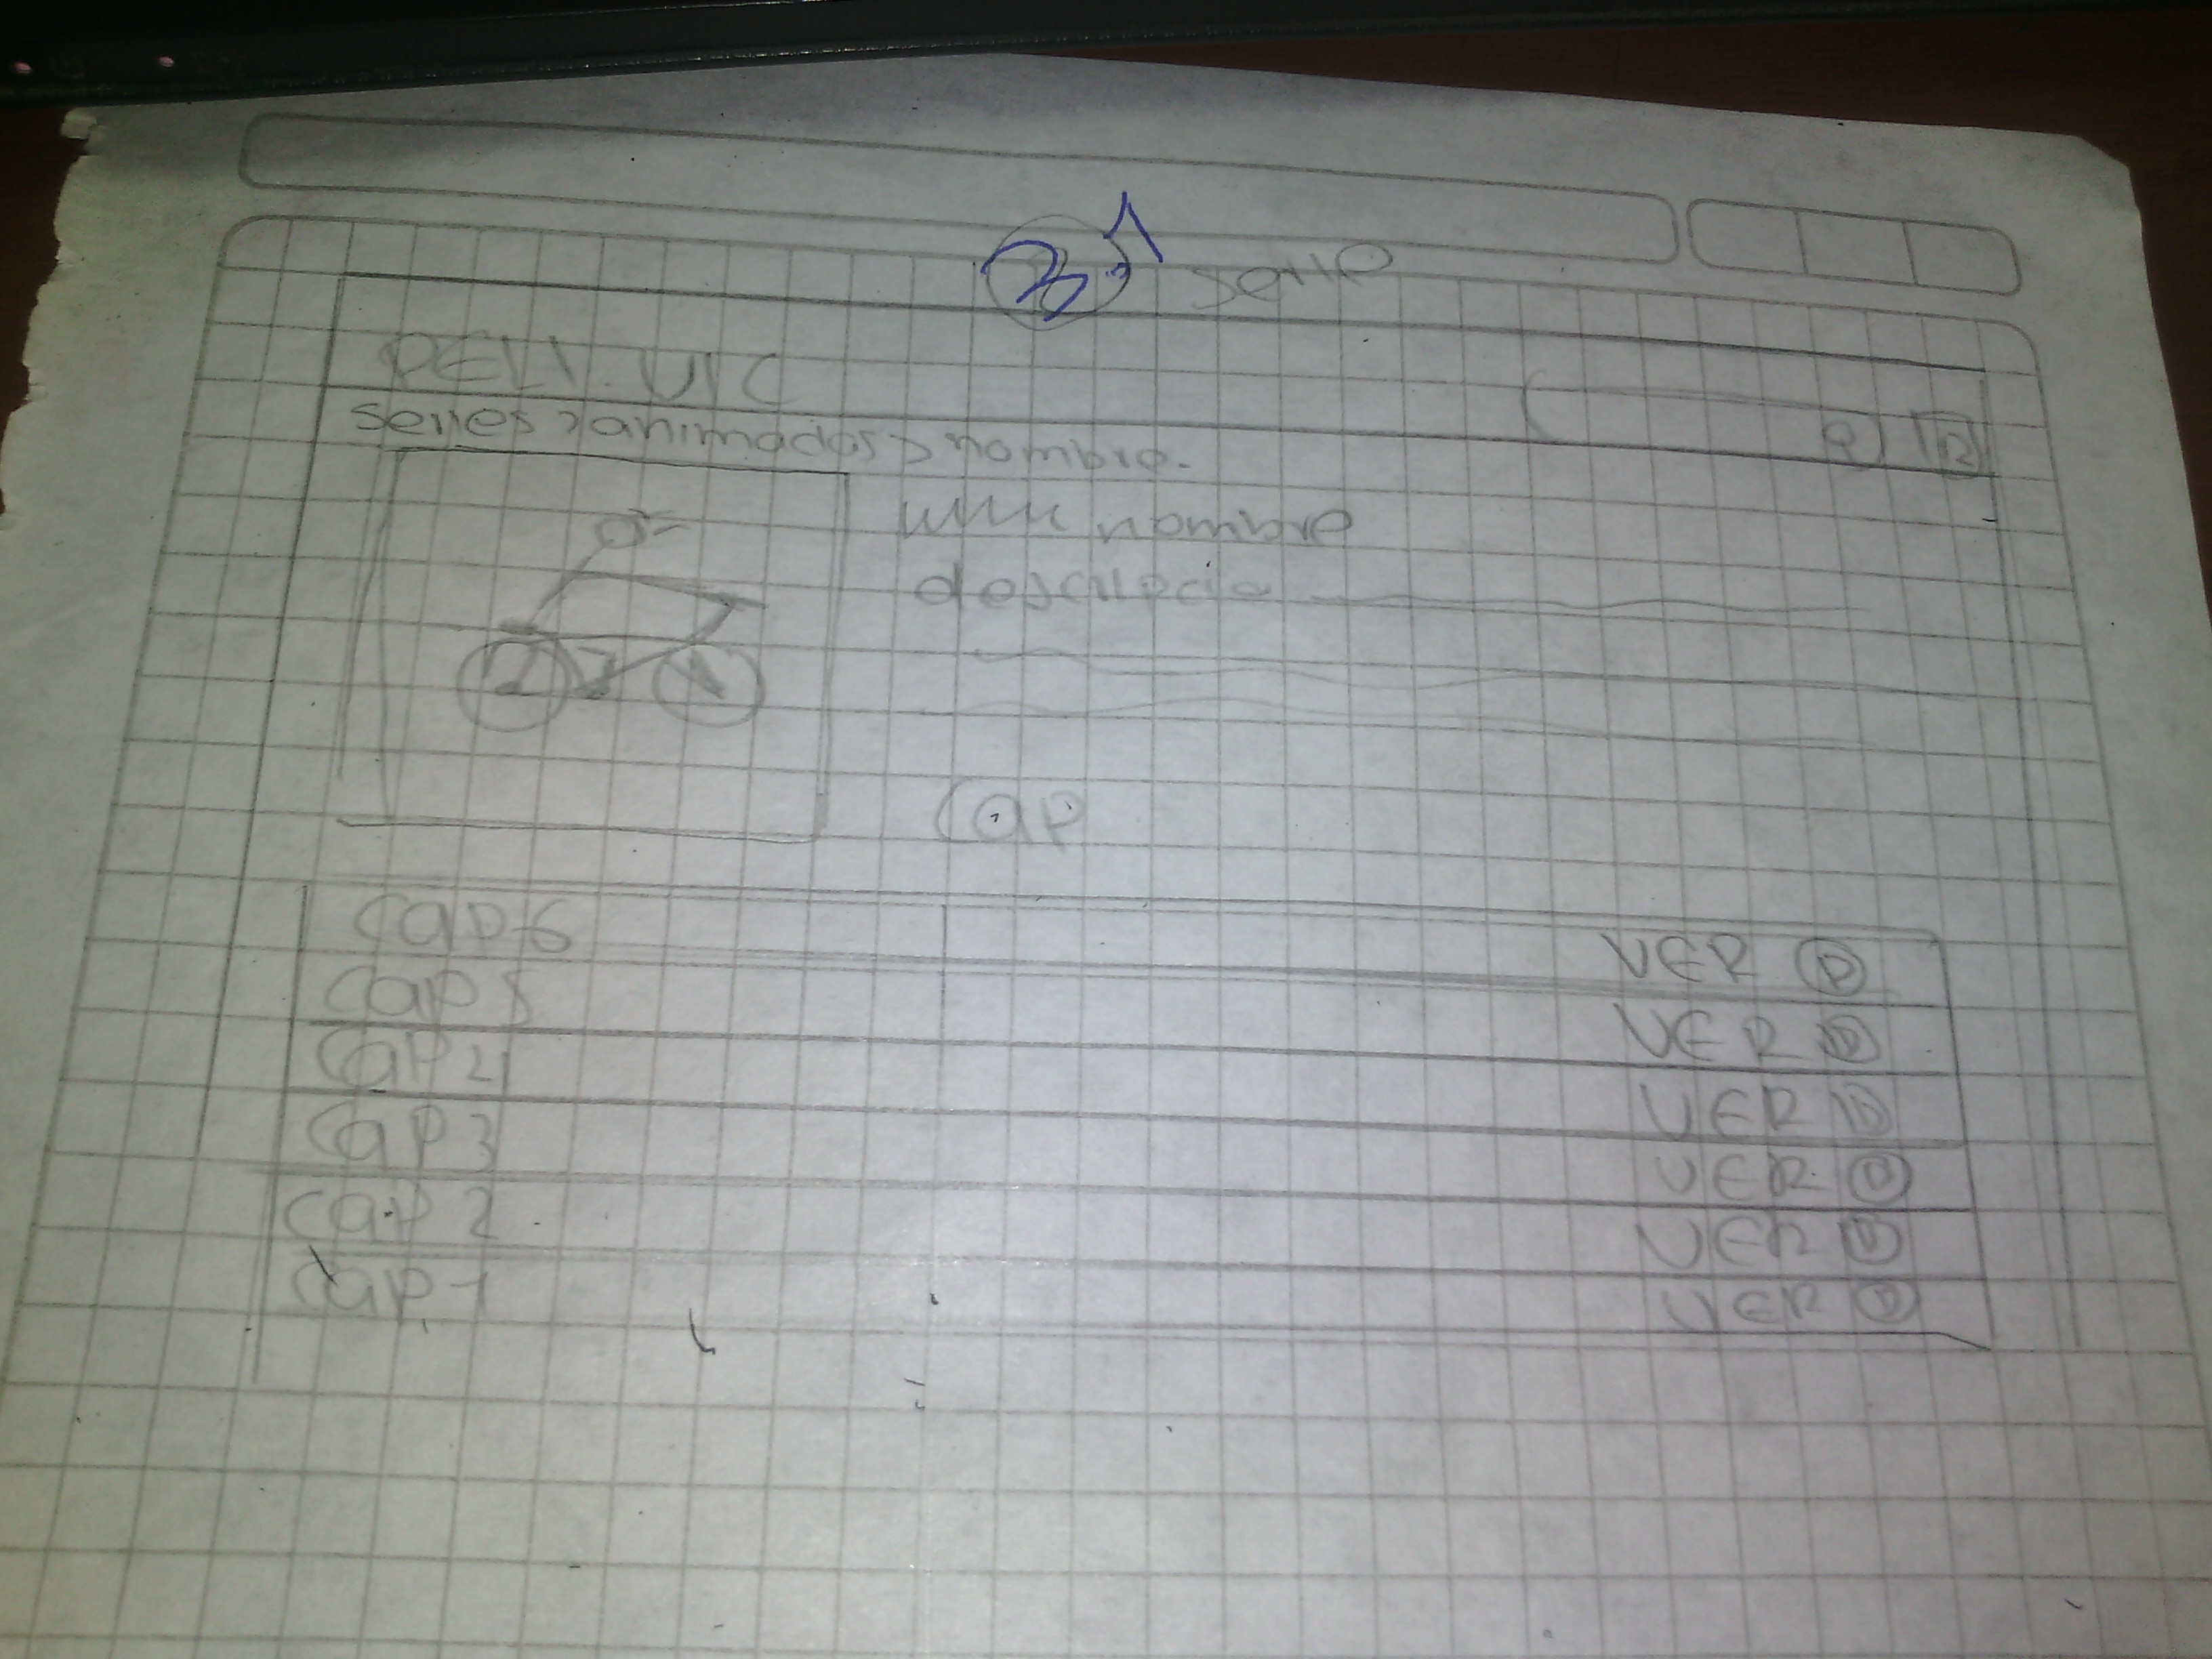 3.1 serie
PELI.VIC
series > animados > nombre.
nombre
cap
cap 6 VER
cap 5 VER
cap 4 VER
cap 3 VER
cap 2 VER
cap 1 VER